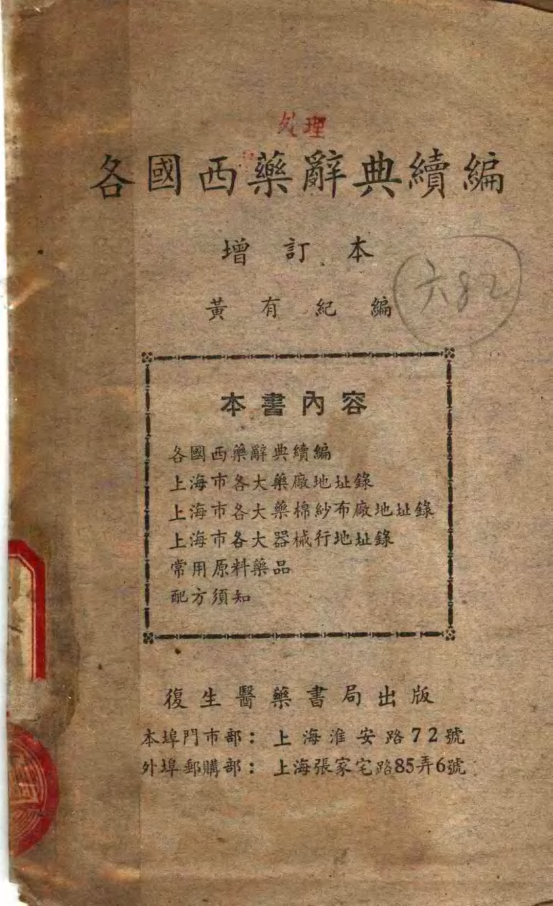 处理
各國西藥辭典續編
增訂本
黃有紀編
六82
本書內容
各國西藥辭典續編
上海市各大藥廠地址錄
上海市各大藥棉紗布廠地址錄
上海市各大器械行地址錄
常用原料藥品
配方須知
復生醫藥書局出版
本埠門市部：上海淮安路72號
外埠郵購部：上海張家宅路85弄6號